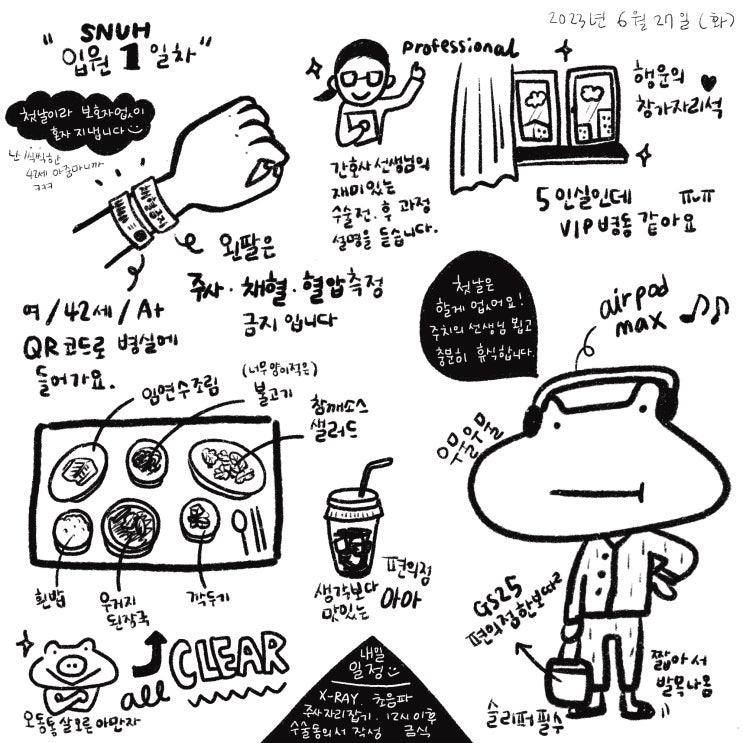 2023년 6월 27일 (화)
SNUH
"입원 1일차"
첫날이라 보호자없이
혼자 지냅니다
난 씩씩한
42세 아줌마니까
ㅋㅋㅋ
채혈금지
왼팔은
주사·채혈·혈압측정
금지 입니다
여/42세/A+
QR코드로 병실에
들어가요.
professional
간호사 선생님의
재미있는
수술전.후 과정
설명을 듣습니다.
행운의
창가자리석
5인실인데 ㅠㅠ
VIP병동 같아요
첫날은
할게 없어요!
주치의선생님 뵙고
충분히 휴식합니다.
airpod
max
우물우물
임연수조림
(너무양이적은)
불고기
참깨소스
샐러드
흰밥
우거지
된장국
깍두기
생각보다
맛있는
편의점
아아
GS25
편의점한보따리
짧아서
발목나옴
슬리퍼필수
all CLEAR
오동통 살오른 아만자
내일
일정
X-RAY. 초음파
주사자리잡기. 12시 이후
수술동의서 작성 금식